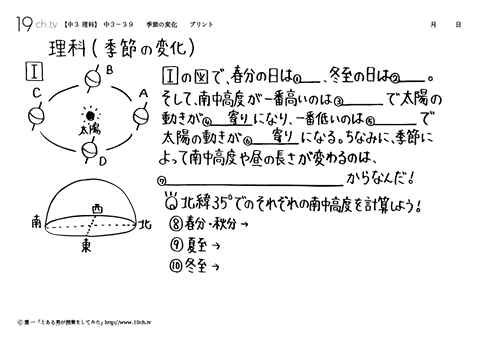 19 ch.tv 【中3 理科】 中3－39 季節の変化 プリント 月 日
理科(季節の変化)
I
B
C
A
太陽
D
西
南
北
東
Iの図で、春分の日は①＿＿、冬至の日は②＿＿。
そして、南中高度が一番高いのは③＿＿で太陽の
動きが④ 寄り になり、一番低いのは⑤＿＿で
太陽の動きが⑥ 寄り になる。ちなみに、季節に
よって南中高度や昼の長さが変わるのは、
⑦＿＿からなんだ!
北緯35°でのそれぞれの南中高度を計算しよう!
⑧春分・秋分→
⑨夏至→
⑩冬至→
© 葉一「とある男が授業をしてみた」http://www.19ch.tv